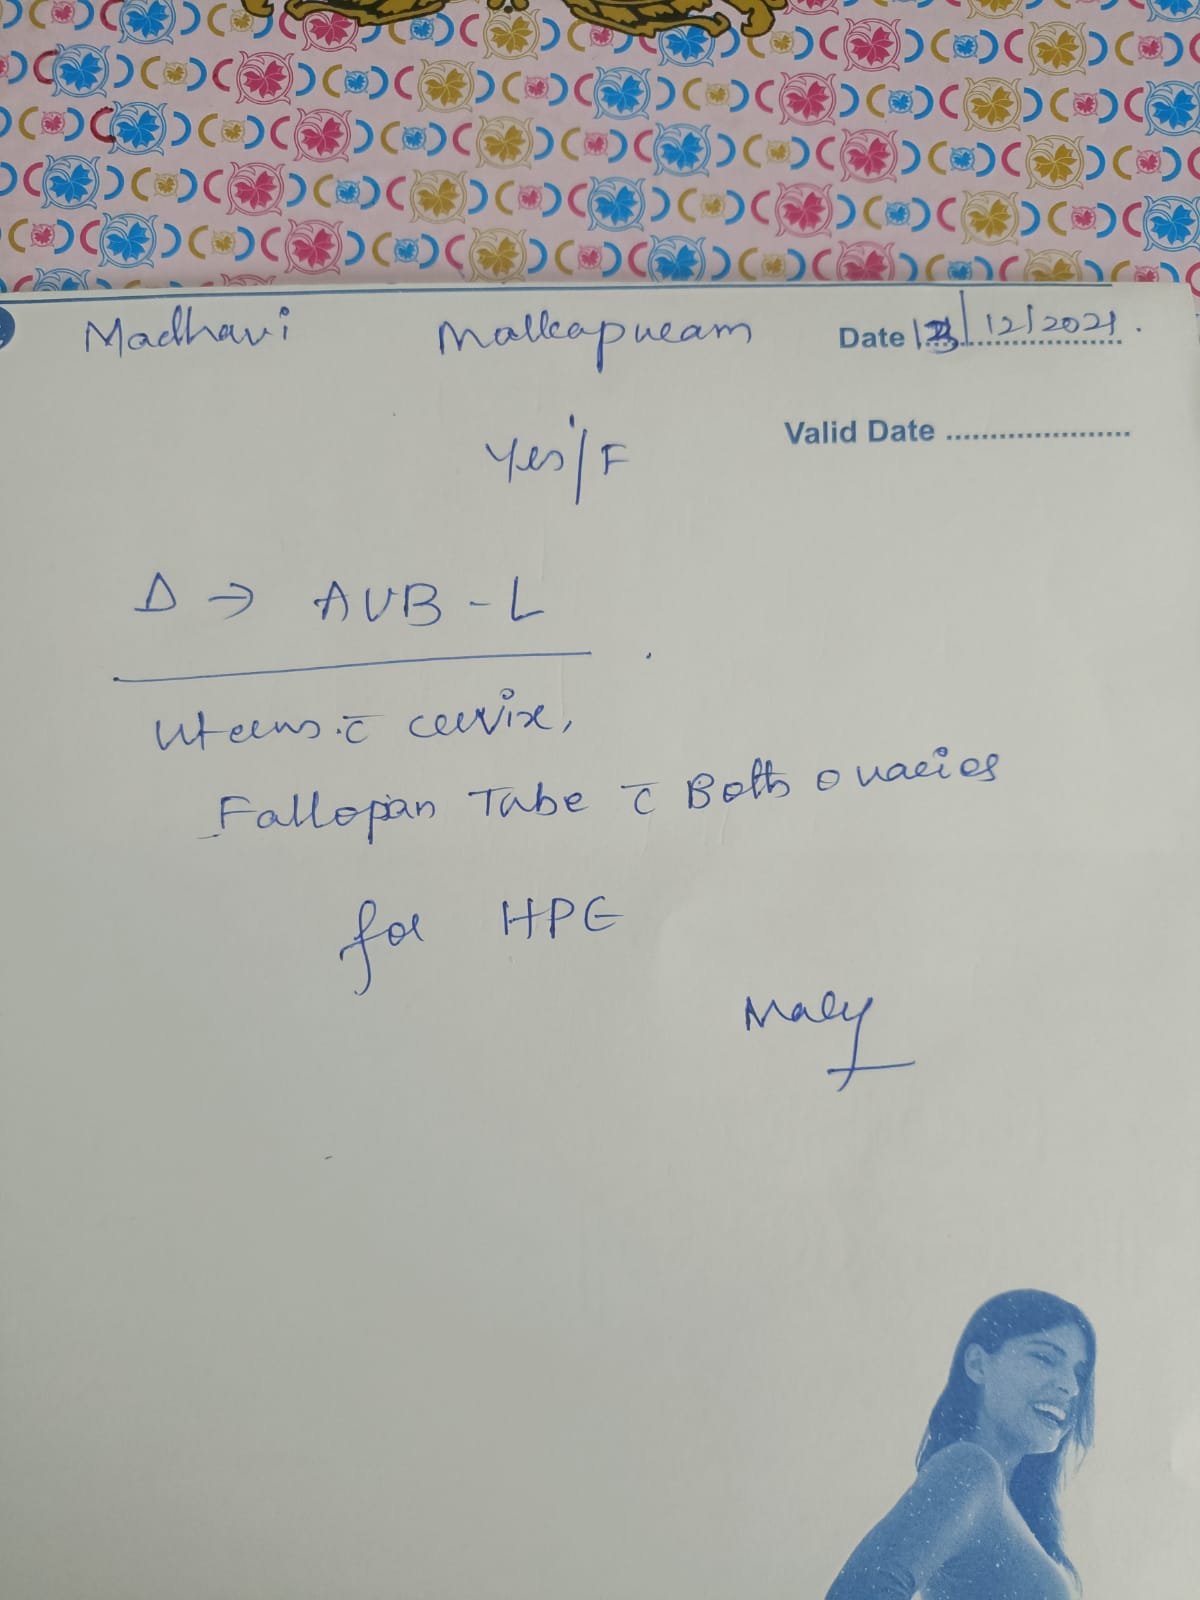 Madhavi Malkapuram Date 13/12/2021.
Valid Date ........................
Yrs/F
Δ → AUB - L
Uterus c̄ cervix,
Fallopian Tube c̄ Both ovaries
for HPE